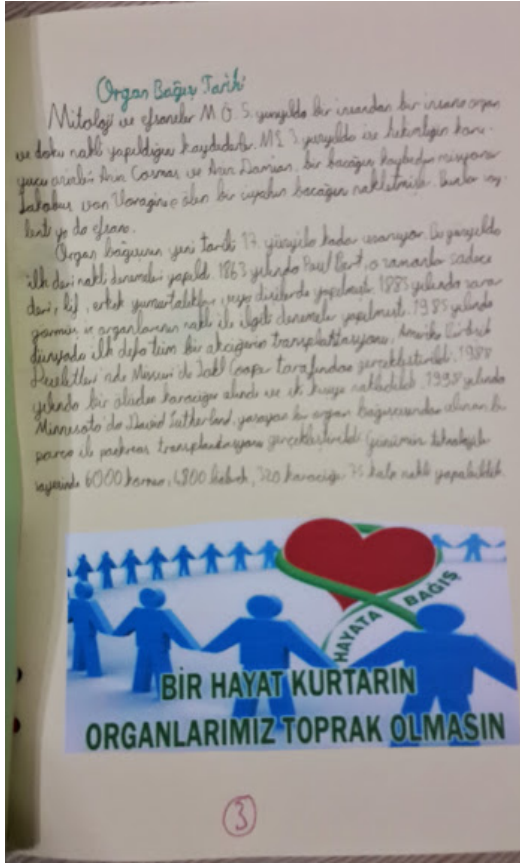 Organ Bağışı Tarihi
Mitoloji ve efsaneler M.Ö. 5. yüzyılda bir insandan bir insana organ
ve doku nakli yapıldığını kaydederler. MS 3. yüzyılda ise hekimliğin koru-
yucu azizleri Aziz Cosmas ve Aziz Damian, bir bacağını kaybeden misyoner
Jakobus von Voragine ölen bir siyahın bacağını nakletmişler. Bunlar söy-
lenti ya da efsane.
Organ bağışının yeni tarihi 17. yüzyıla kadar uzanıyor. Bu yüzyılda
ilk deri nakli denemeleri yapıldı. 1863 yılında Paul Bert, o zamanlar sadece
deri, kıl, erkek yumurtalıkları yapılmıştı. 1883 yılında zarar
görmüş iç organlarının nakli ile ilgili denemeler yapılmıştı. 1985 yılında
dünyada ilk defa tüm bir akciğerin transplantasyonu, Amerika Birleşik
Devletleri'nde Missouri'de Joel Cooper tarafından gerçekleştirildi. 1988
yılında bir ölüden karaciğer alındı ve iki kişiye nakledildi. 1998 yılında
Minnesota'da David Sutherland, yaşayan bir organ bağışçısından alınan bir
parça ile pankreas transplantasyonu gerçekleştirildi. Günümüz teknolojisi
sayesinde 6000 kornea, 4800 böbrek, 320 karaciğer 75 kalp nakli yapılabildi.
HAYATA BAĞIŞ
BİR HAYAT KURTARIN
ORGANLARIMIZ TOPRAK OLMASIN
3